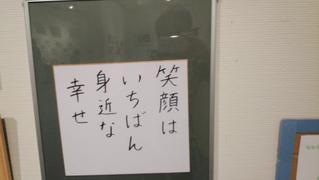 笑顔は
いちばん
身近な
幸せ